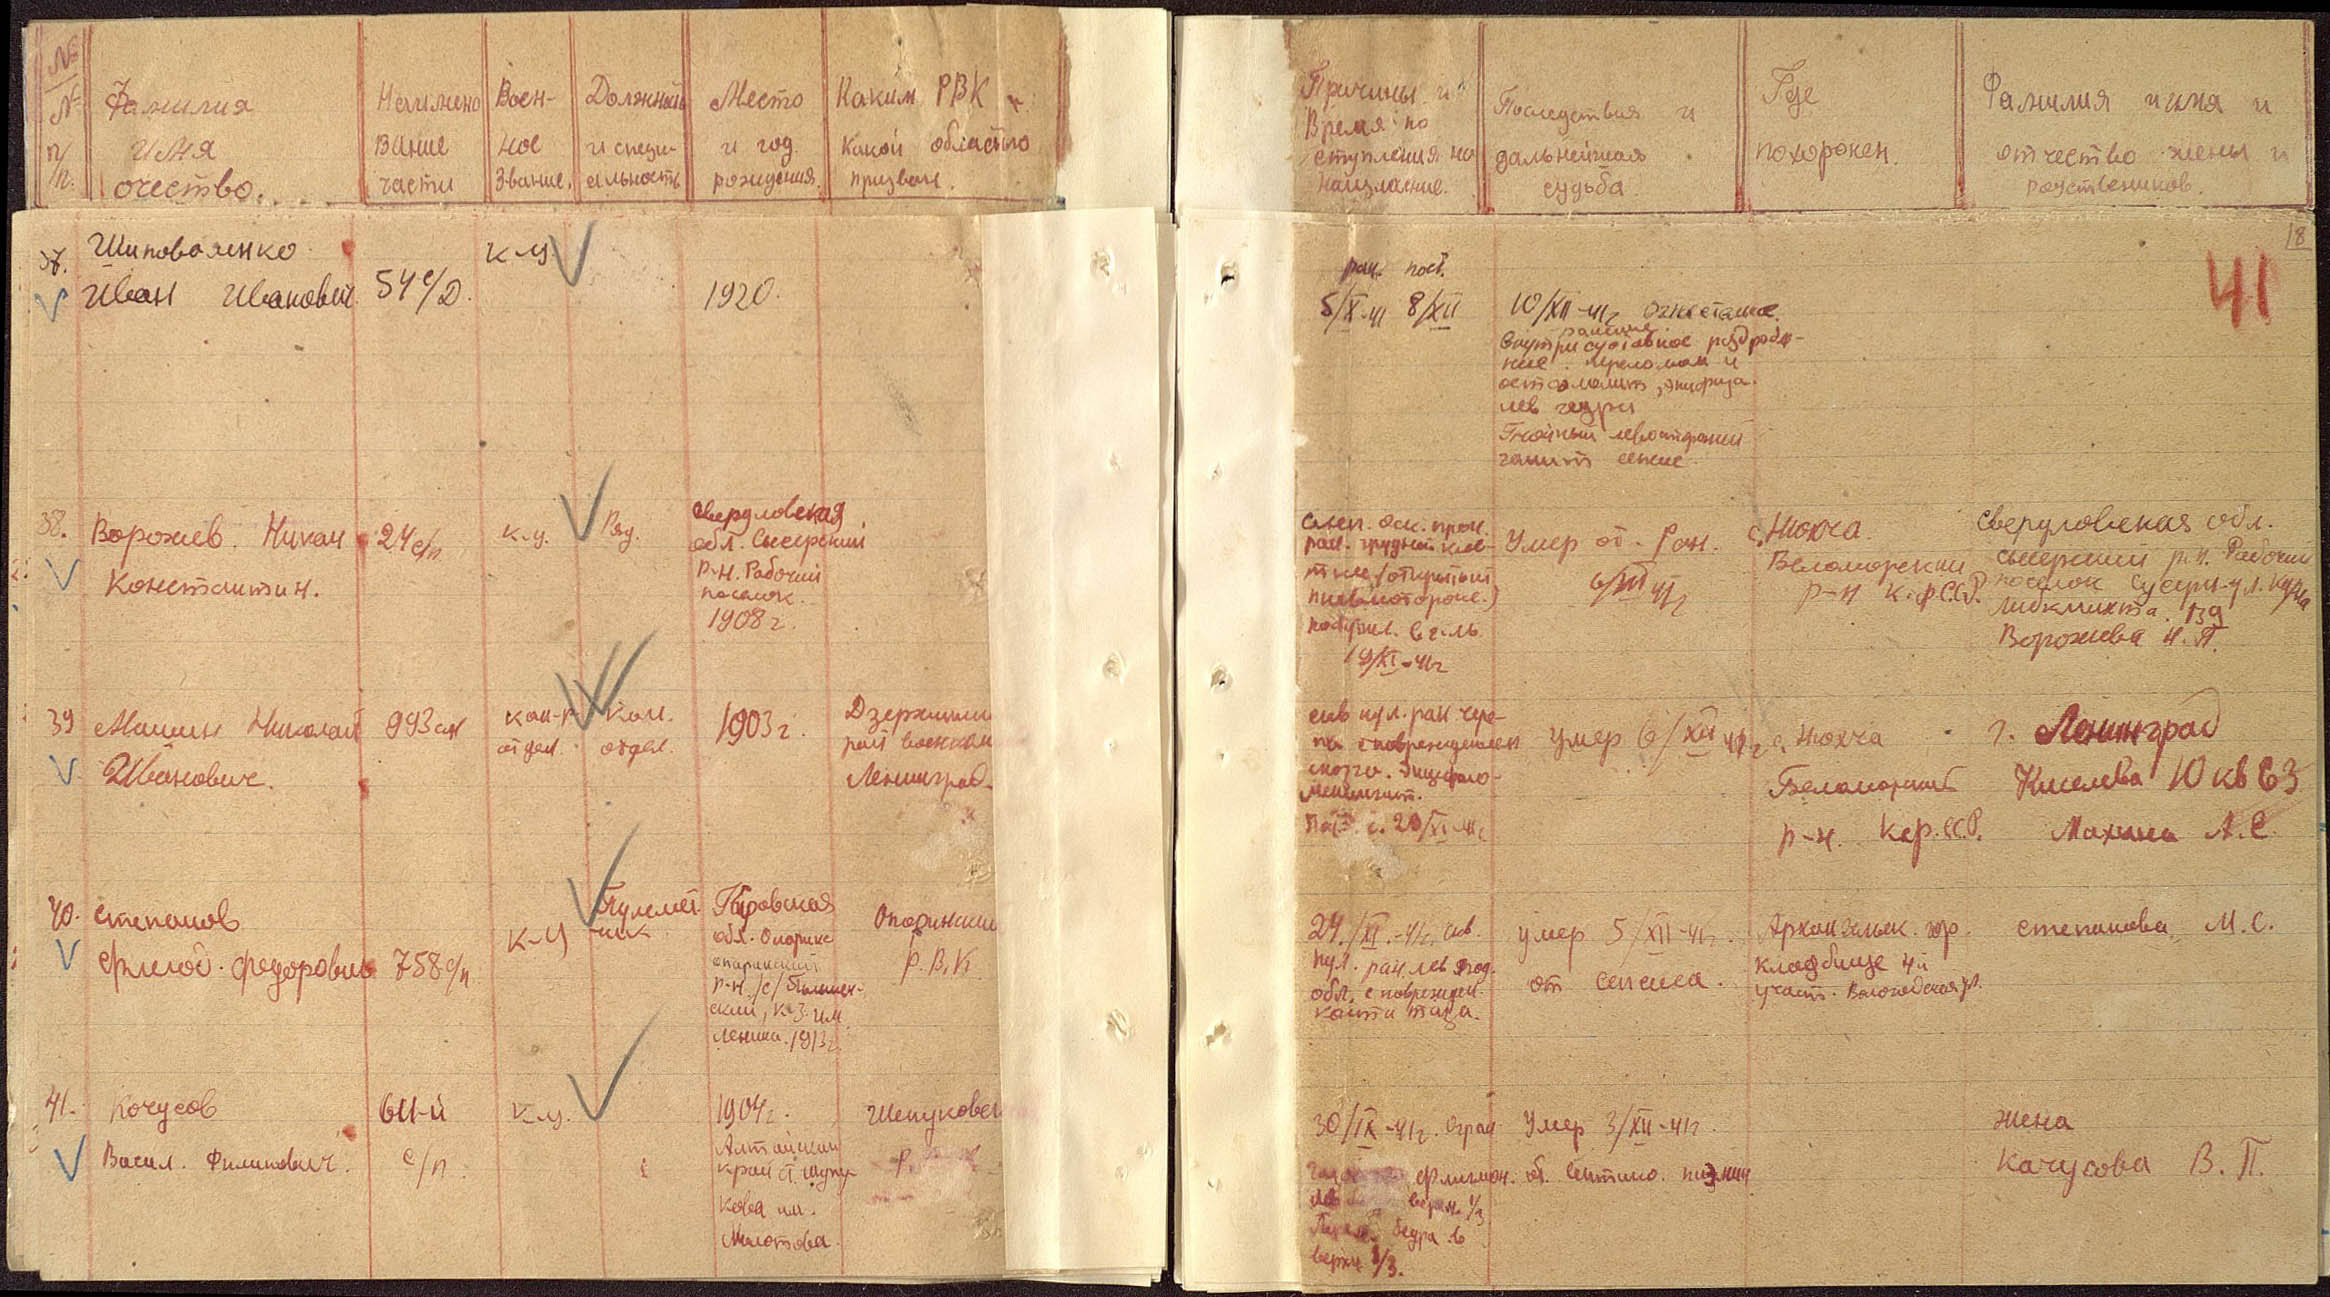 № № п/п.
Фамилия
имя
очество.
Наимено
вание
части
Воен-
ное
звание.
Должность
и специ-
альность
Место
и год
рождения.
Каким РВК и
какой областью
призван.
Причины и
Время по
ступления на
на излечение.
Последствия и
дальнейшая
судьба.
Где
похоронен.
Фамилия имя и
отчество жены и
родствеников.
18
41
37. Шиповаленко
Иван Иванович
54 с/д.
к-ц.
1920.
ран. пост.
5/X-41 8/XII
10/XII-41г
ранение
внутрисуставное раздробле-
ние
лев бедра
Гнойный левосторонний
сепсис
38. Ворожев Никан
Константин.
24 с/п
к-ц.
Ряд.
Свердловская
обл. Сысерский
р-н. Рабочий
поселок.
1908 г.
Слеп. оск. прон.
ран. грудной клет-
тки (открытый
пневмоторокс.)
поступил. в г-ль
19/XI-41г
Умер от. Ран.
6/XII 41г
с. Нюхча.
Беломорский
р-н К.ф.С.С.Р.
Свердловская обл.
Сысерский р-н. Рабочий
поселок Сусерт-ул. Карла
Либкнихта. 139
Ворожева Н. П.
39 Машин Николай
Иванович.
993 сп
ком-р
отдел.
ком.
отдел.
1903 г.
Дзержински
рай военком
Ленинград.
слв пул. ран чере-
па с повреждением
мозга. Энцефало-
менингит.
Пост. с. 20/XI-41г
умер 6/XII 41г
с. Нюхча
Беломорский
р-н. Кар.ССР.
г. Ленинград
Киселева 10 кв 63
Махина А. С.
40. Степанов
Филоб. Федорович
758 с/п
к-ц
Пулемет
чик
Кировская
обл. Опаринс
опаринский
р-н. /с/
ский, к-з. им.
Ленина. 1913 г.
Опарински
Р.В.К.
24./XI.-41г. слв.
пул. ран. лев ягод.
обл. с поврежден.
кости таза.
умер 5/XII-41г.
от сепсиса.
Архангельск. гор.
кладбище 4й
участ. Вологодская ул.
Степанова М. С.
41. Кочусов
Васил. Филипович.
611-й
с/п
к-ц.
1904 г.
Алтайский
край ст. шипу-
кова им.
Молотова.
Шепуковск
Р.
30/IX-41г.
флигмон.
верхн. 1/3
бедра в
верхн 1/3.
Умер 3/XII-41г.
от. Септико.
жена
Качусова В. П.